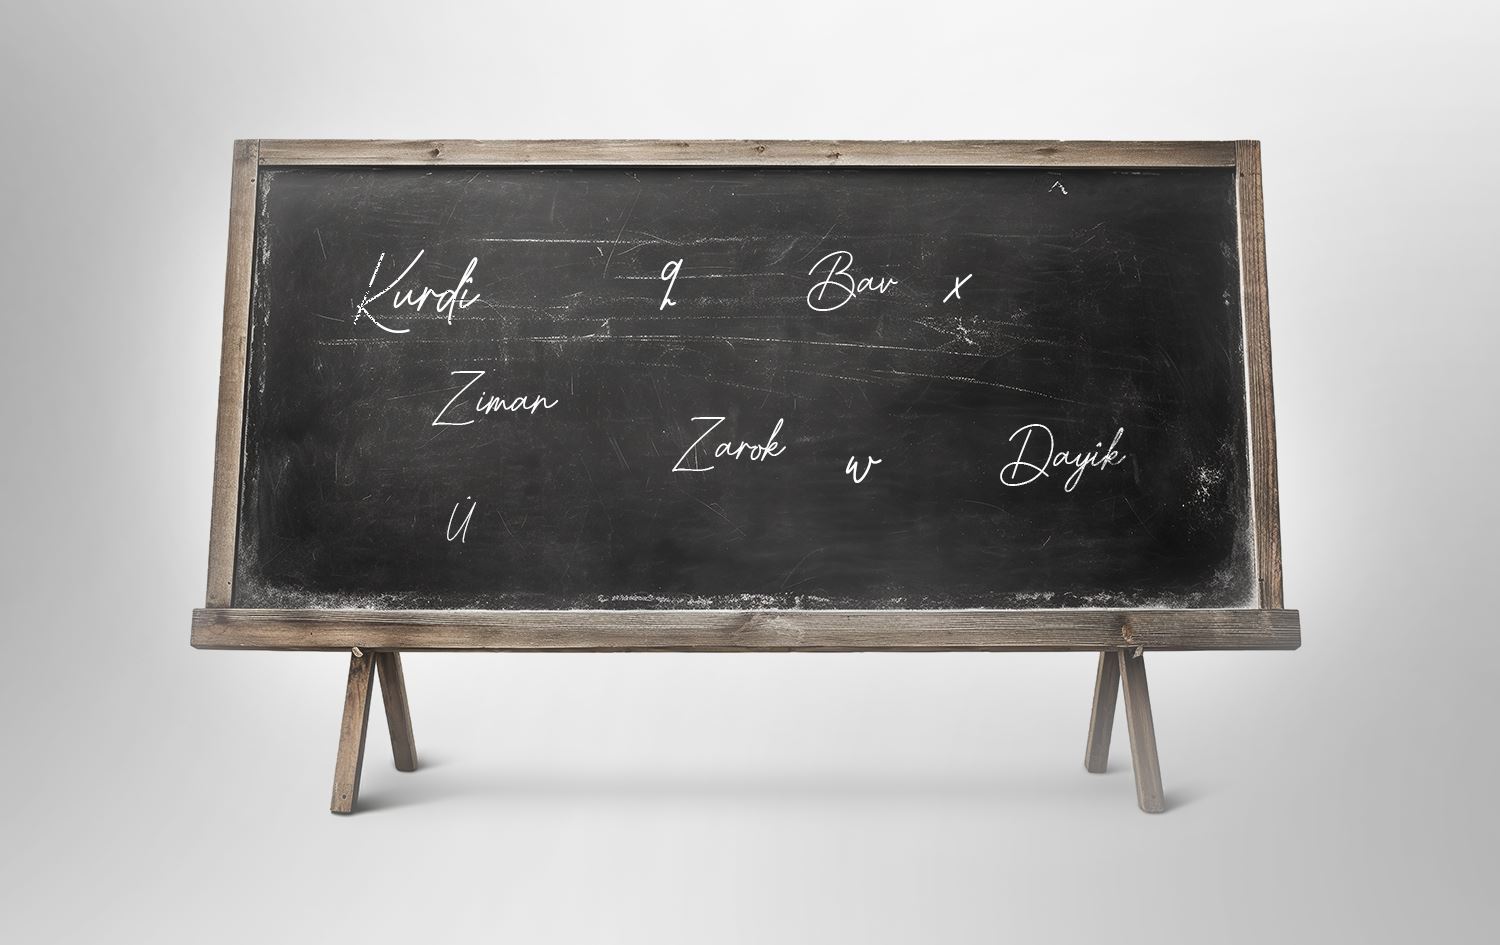 Kurdî q Bav x
Ziman
Zarok w Dayîk
Û